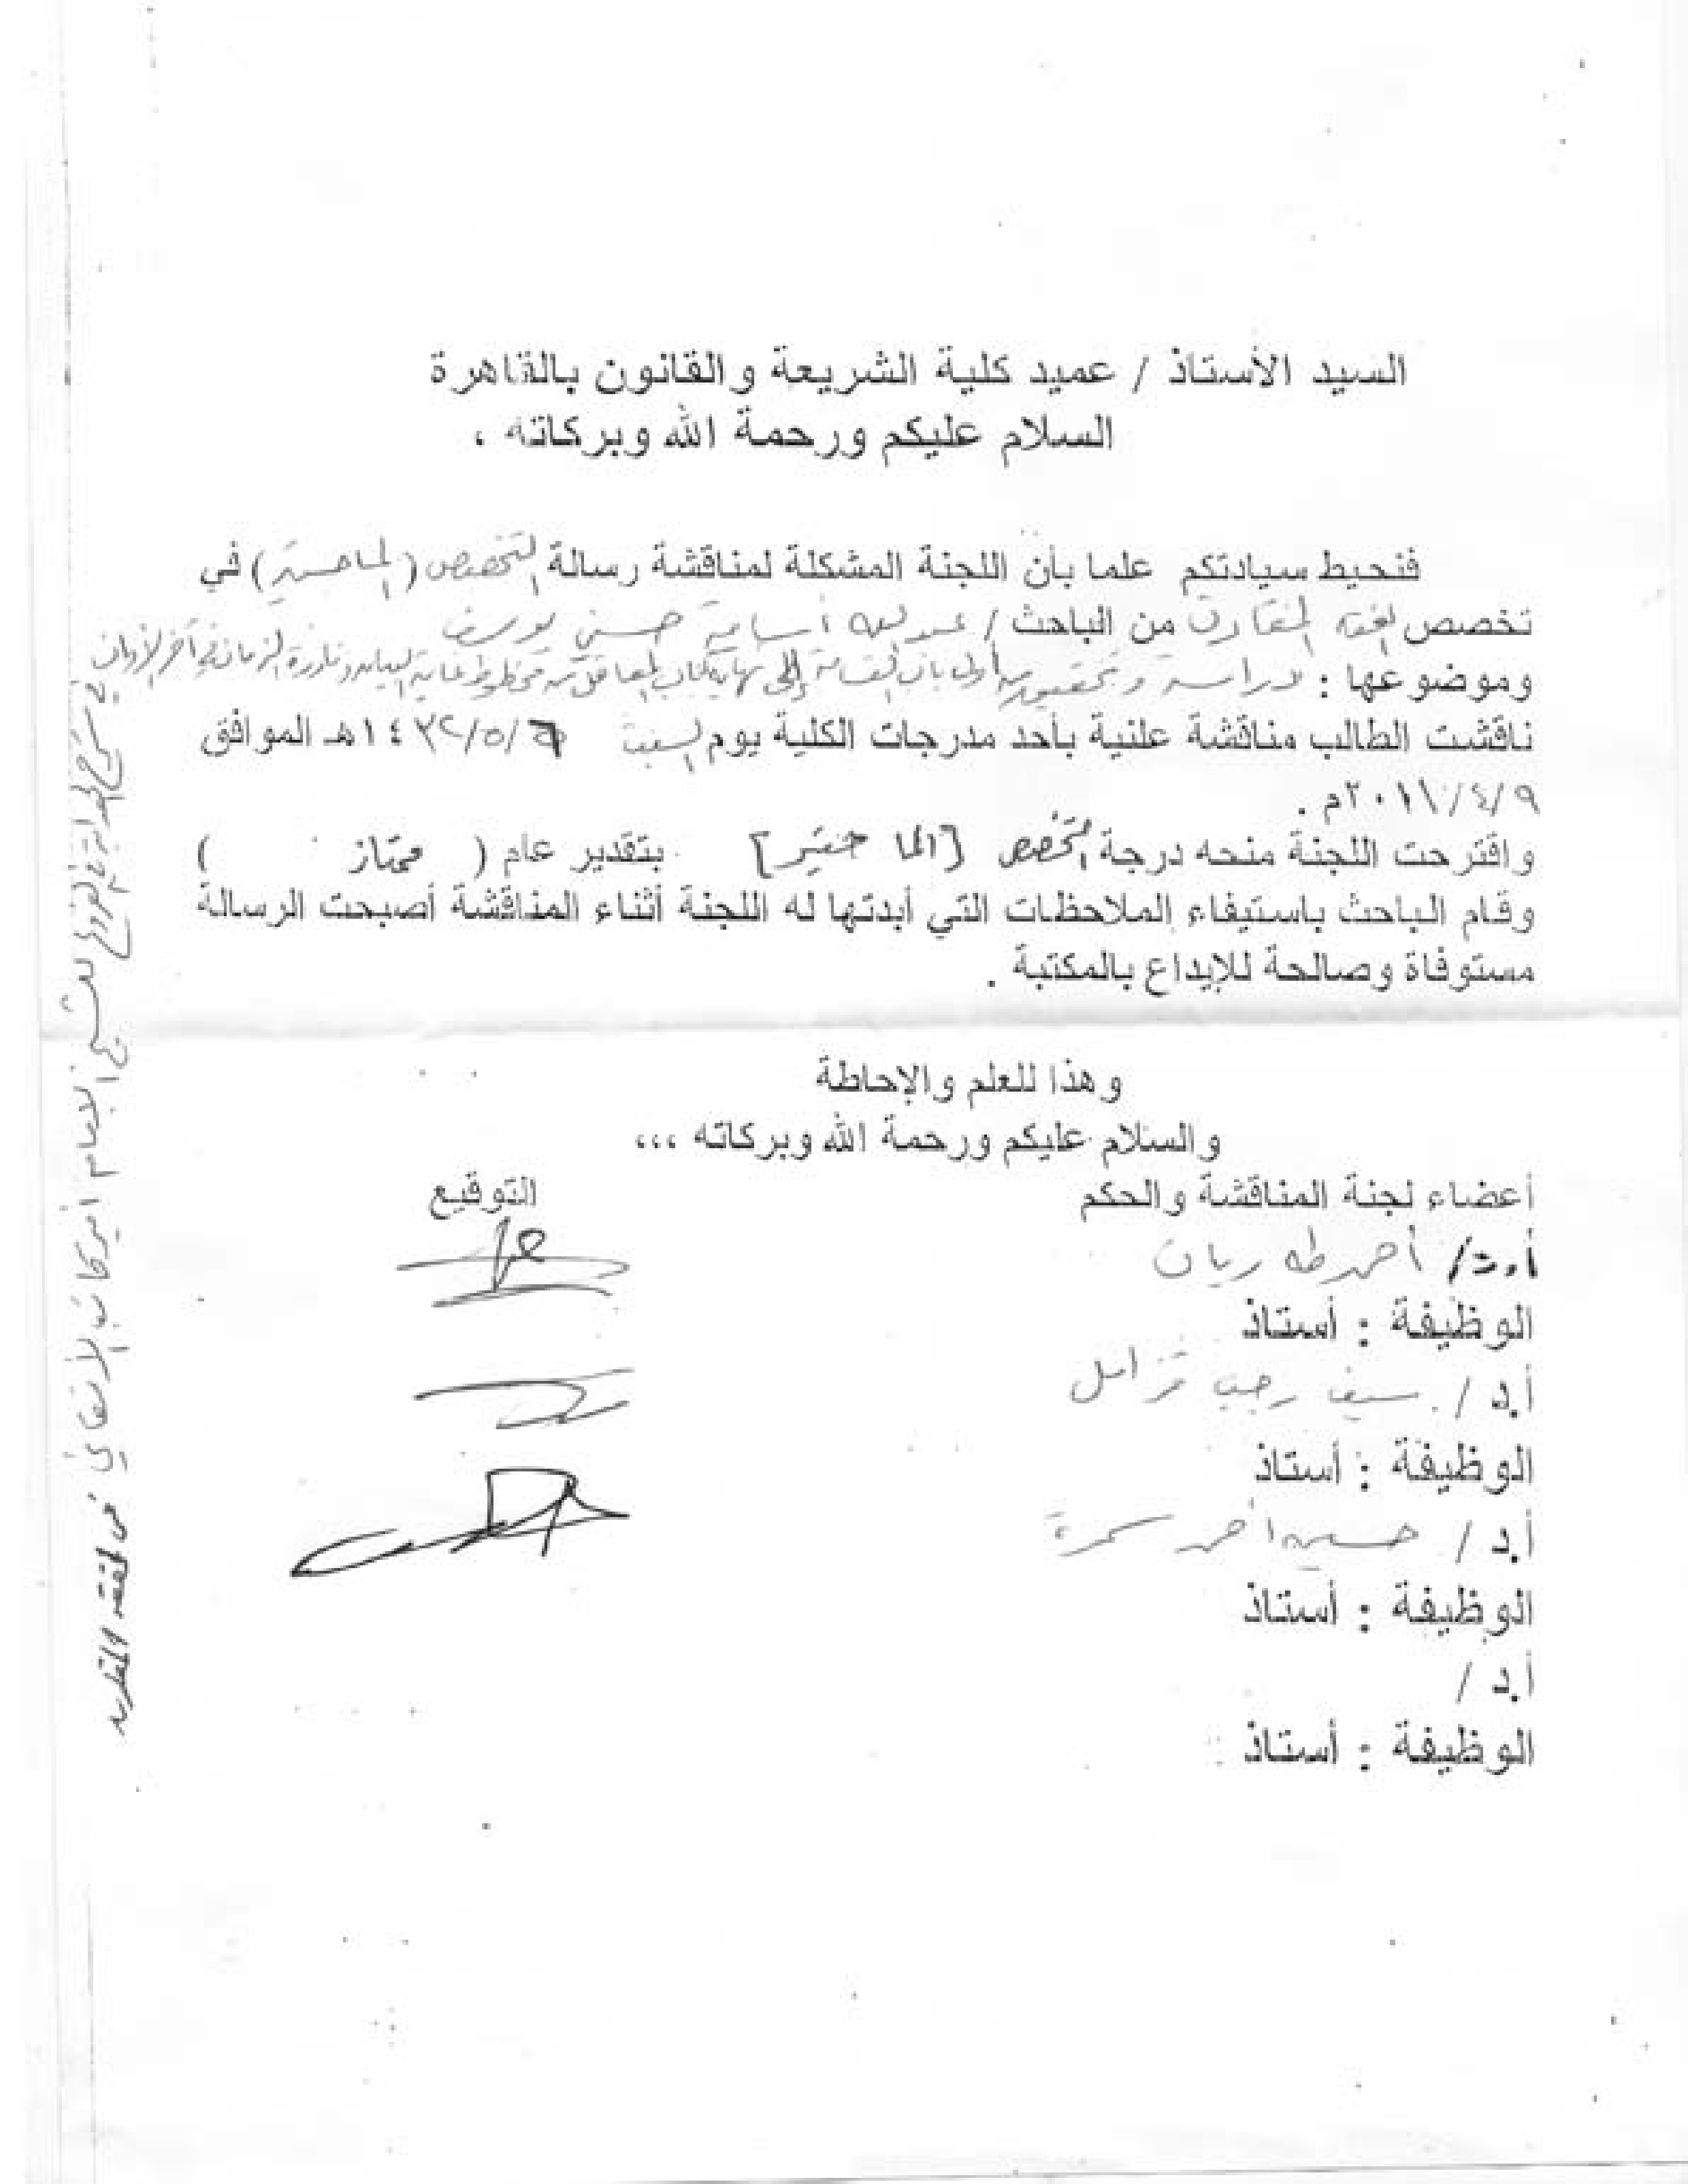 السيد الأستاذ / عميد كلية الشريعة والقانون بالقاهرة
السلام عليكم ورحمة الله وبركاته ،
فنحيط سيادتكم علما بأن اللجنة المشكلة لمناقشة رسالة التخصص (الماجستير) في
تخصص الفقه المقارن من الباحث / عبد الله أسامة حسني يوسف
وموضوعها : دراسة وتحقيق من أول باب القسامة إلى نهاية كتاب المعاقل من مخطوط غاية البيان ونادرة الزمان في آخر الأوان
ناقشت الطالب مناقشة علنية بأحد مدرجات الكلية يوم السبت ١٤٣٢/٥/٦هـ الموافق
٢٠١١/٤/٩م .
واقترحت اللجنة منحه درجة التخصص [الماجستير] بتقدير عام ( ممتاز )
وقام الباحث باستيفاء الملاحظات التي أبدتها له اللجنة أثناء المناقشة أصبحت الرسالة
مستوفاة وصالحة للإيداع بالمكتبة .
وهذا للعلم والإحاطة
والسلام عليكم ورحمة الله وبركاته ،،،
أعضاء لجنة المناقشة والحكم التوقيع
أ.د/ أحمد طه ريان
الوظيفة : أستاذ
أ.د / سيف رجب قزامل
الوظيفة : أستاذ
أ.د / حسين أحمد سمرة
الوظيفة : أستاذ
أ.د /
الوظيفة : أستاذ
في شرح الهداية في الفروع للشيخ الإمام أمير كاتب الأتقاني في الفقه المقارن